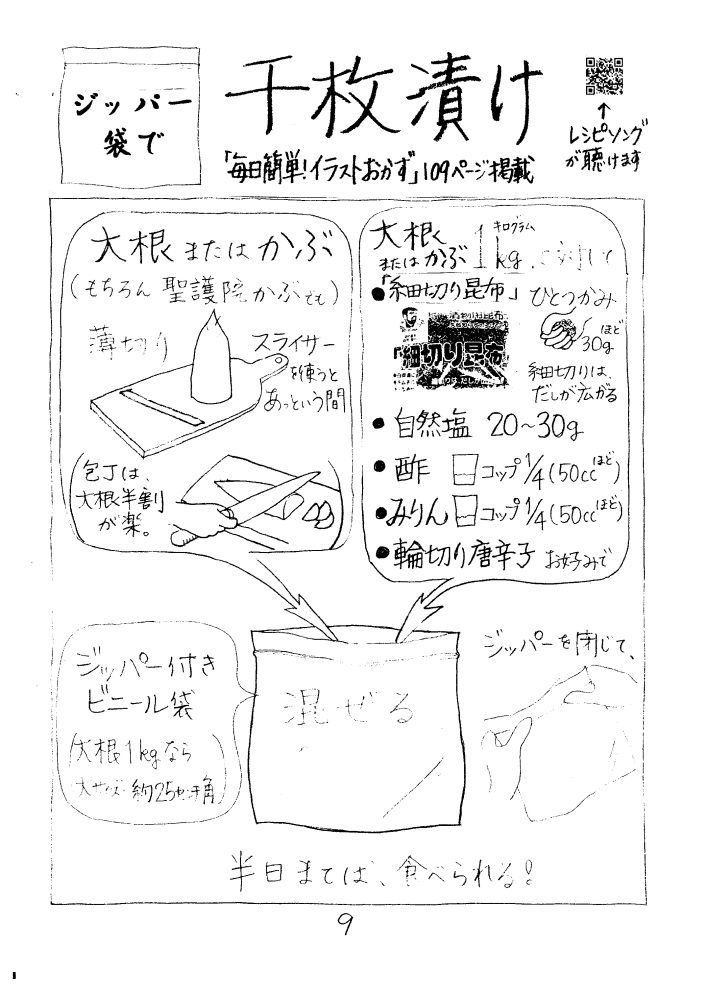 ジッパー
袋で
千枚漬け
「毎日簡単!イラストおかず」109ページ掲載
↑
レシピソング
が聴けます
大根またはかぶ
(もちろん聖護院かぶでも)
薄切り
スライサー
を使うと
あっという間
包丁は、
大根半割
が楽。
大根
またはかぶ
1kg
キログラム
に対して
●「細切り昆布」ひとつかみ
「細切り昆布
30gほど
細切りは、
だしが広がる
●自然塩 20〜30g
●酢 コップ1/4(50ccほど)
●みりん コップ1/4(50ccほど)
●輪切り唐辛子 お好みで
ジッパー付き
ビニール袋
(大根1kgなら
大サイズ 約25センチ角)
混ぜる
ジッパーを閉じて、
半日まてば、食べられる!
9